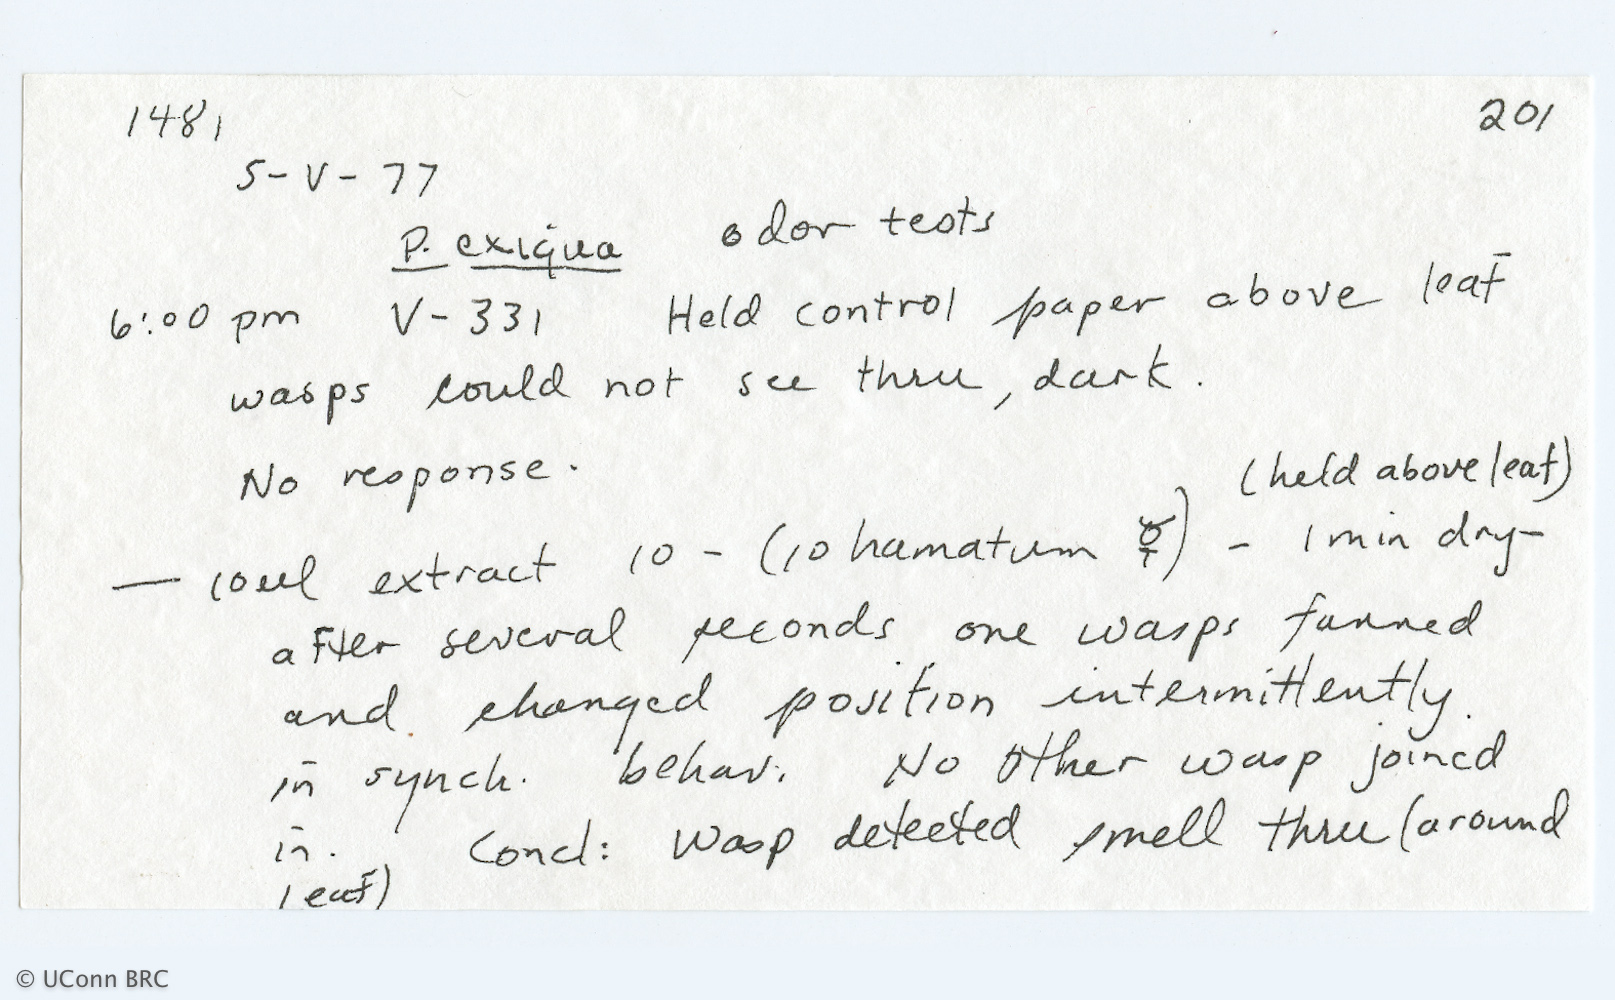 1481 201
5-V-77
P. exigua odor tests
6:00 pm V-331 Held control paper above leaf
wasps could not see thru, dark.
No response.
(held above leaf)
— 10ul extract 10 - (10 hamatum ☿) - 1 min dry-
after several seconds one wasps fanned
and changed position intermittently.
in synch. behav. No other wasp joined
in. Concl: Wasp detected smell thru (around
leaf)
© UConn BRC